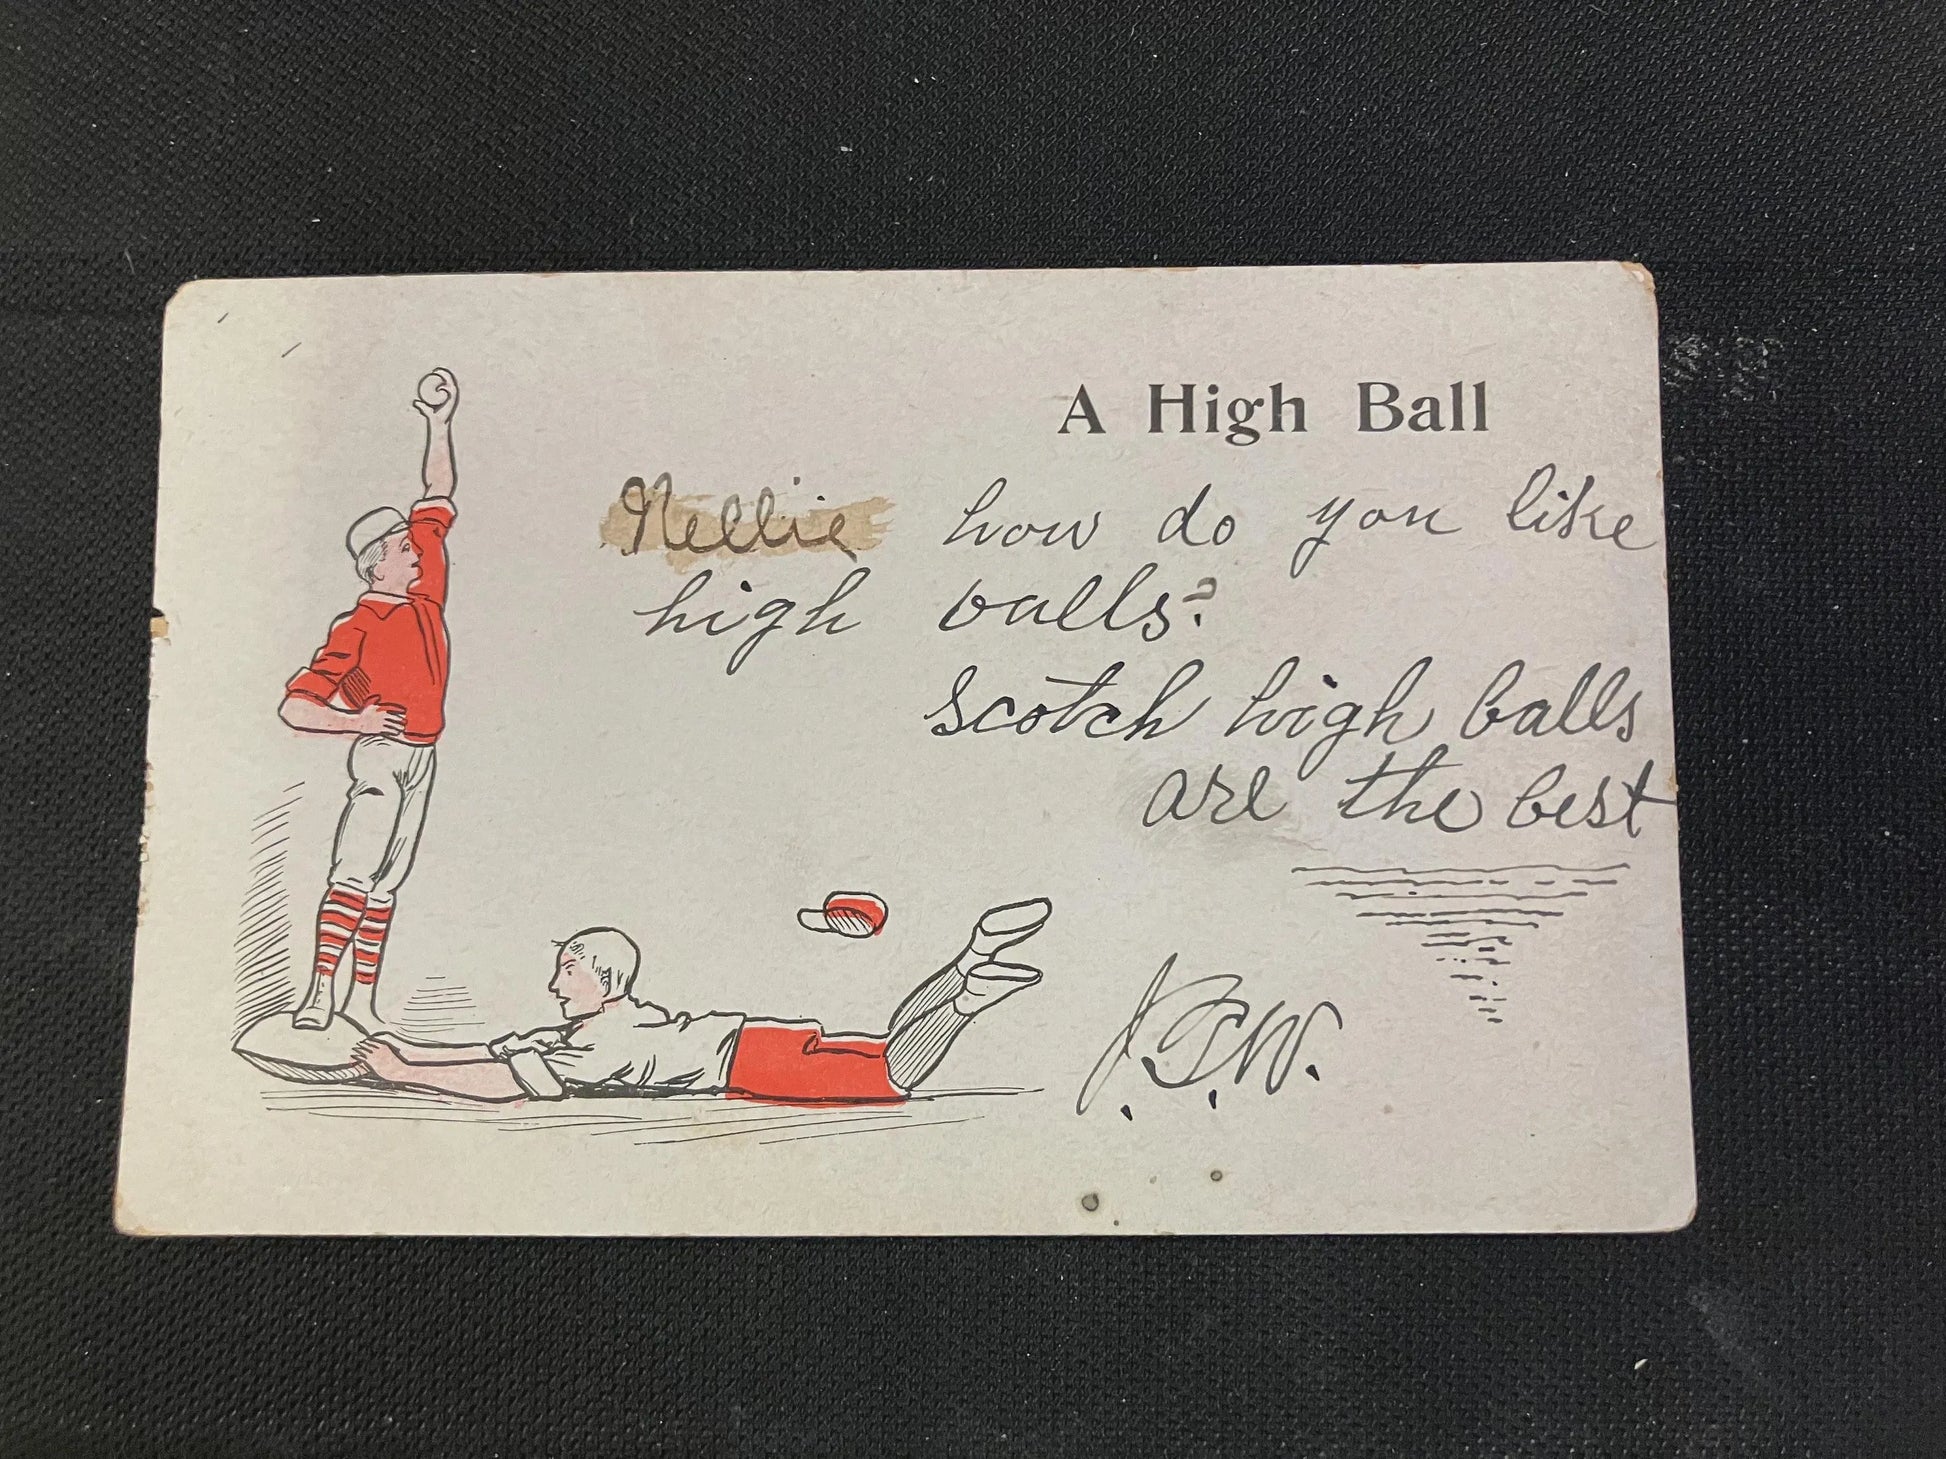 A High Ball
Nellie how do you like
high balls?
Scotch high balls
are the best
J.T.W.